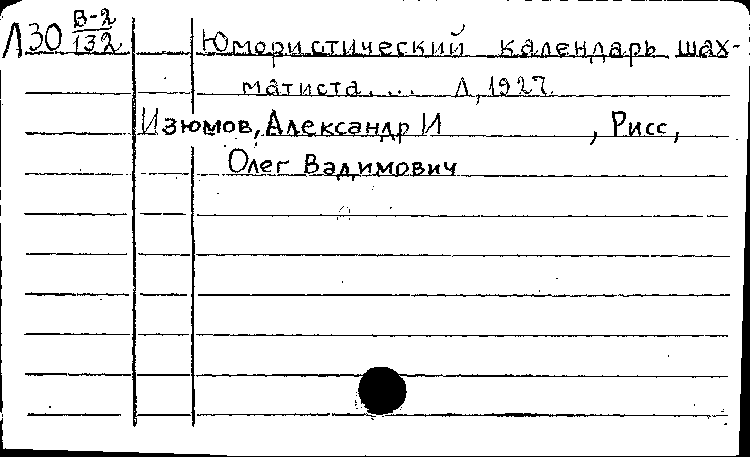 Л30 В-2/132 Юмористический календарь шах-
матиста.... Л, 1927.
Изюмов, Александр И , Рисс,
Олег Вадимович